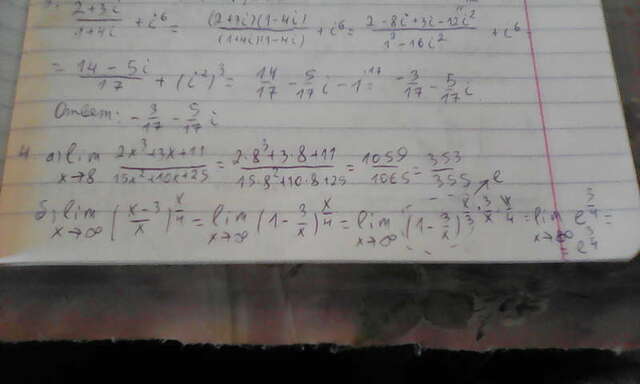 (2+3i)/(1+4i) + i⁶ = ((2+3i)(1-4i))/((1+4i)(1-4i)) + i⁶ = (2-8i+3i-12i²)/(1²-16i²) + i⁶
= (14-5i)/17 + (i²)³ = 14/17 - 5/17 i - 1 = -3/17 - 5/17 i
Ответ: -3/17 - 5/17 i
4. а) lim x→8 (2x³+3x+11)/(15x²+10x+25) = (2·8³+3·8+11)/(15·8²+10·8+25) = 1059/1065 = 353/355
б) lim x→∞ ((x-3)/x)^(x/4) = lim x→∞ (1-3/x)^(x/4) = lim x→∞ (1-3/x)^(x/3·3/x·x/4) = lim x→∞ e^(3/4) =
= e^(3/4)